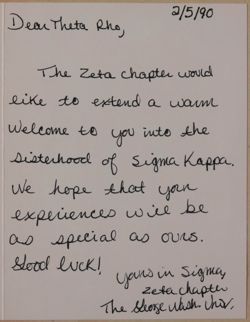 2/5/90
Dear Theta Rho,
The Zeta Chapter would
like to extend a warm
Welcome to you into the
sisterhood of Sigma Kappa.
We hope that your
experiences will be
as special as ours.
Good luck!
yours in Sigma,
Zeta Chapter
The George Wash. Univ.